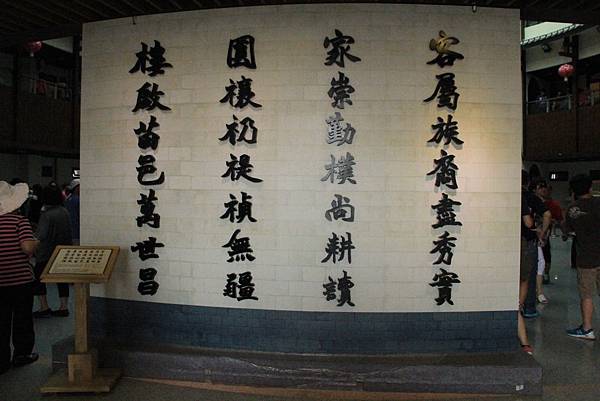 客屬族裔盡秀實
家崇勤樸尚耕讀
圓禳礽禔禎無疆
棲啟苗邑萬世昌